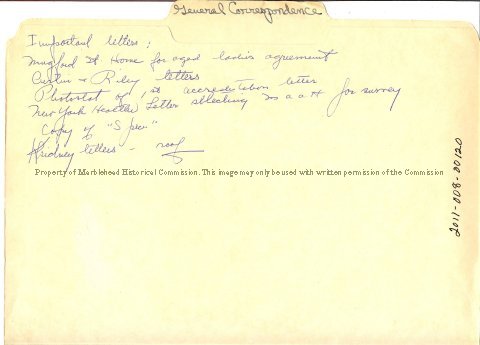 General Correspondence
Important letters;
Mugford St Home for aged ladies agreement
& Riley letters
Photostat of 1st accreditation letter
New York Health Letter for survey
Copy of "
letters - roof
Property of Marblehead Historical Commission. This image may only be used with written permission of the Commission
2011-008-00120